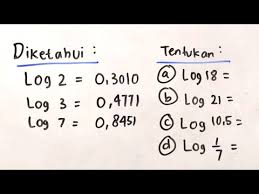 Diketahui :
Log 2 = 0,3010
Log 3 = 0,4771
Log 7 = 0,8451
Tentukan :
a Log 18 =
b Log 21 =
c Log 10,5 =
d Log 1/7 =